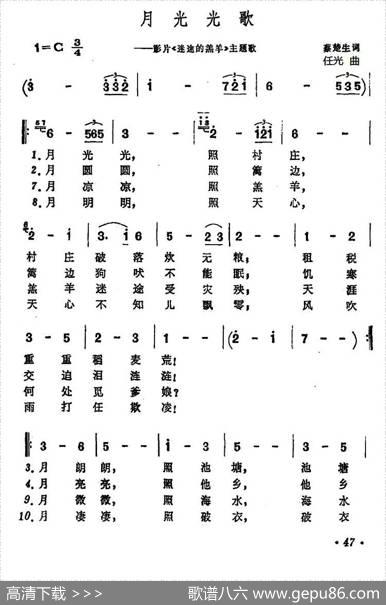 月光光歌
1=C 3/4
——影片《迷途的羔羊》主题歌
蔡楚生词
任光 曲
(3 - 3 3 2 | 1 - 7 2 1 | 6 - 5 3 5)
6 - 5 6 5 | 3 - - | 2 - 1 2 1 | 6 - -
1.月 光 光， 照 村 庄，
2.月 圆 圆， 照 篱 边，
7.月 凉 凉， 照 羔 羊，
8.月 明 明， 照 天 心，
2 - 1 | 3. 1 6 | 5 - 2 3 | 2 - - | 1 - 2
村 庄 破 落 炊 无 粮， 租 税
篱 边 狗 吠 不 能 眠， 饥 寒
羔 羊 迷 途 受 灾 殃， 天 涯
天 心 不 知 儿 飘 零， 风 吹
3 - 5 | 2 - 3 | 1 - - | (2 - 1 | 7 - -)
重 重 稻 麦 荒！
交 迫 泪 涟 涟！
何 处 觅 爹 娘？
雨 打 任 欺 凌！
3 - 6 | 5 - - | 1 - 3 | 5 - - | 3 - 5
3.月 朗 朗， 照 池 塘， 池 塘
4.月 亮 亮， 照 他 乡， 他 乡
9.月 微 微， 照 海 水， 海 水
10.月 凄 凄， 照 破 衣， 破 衣
· 47 ·
高清下载 >>>
歌谱八六 www.gepu86.com